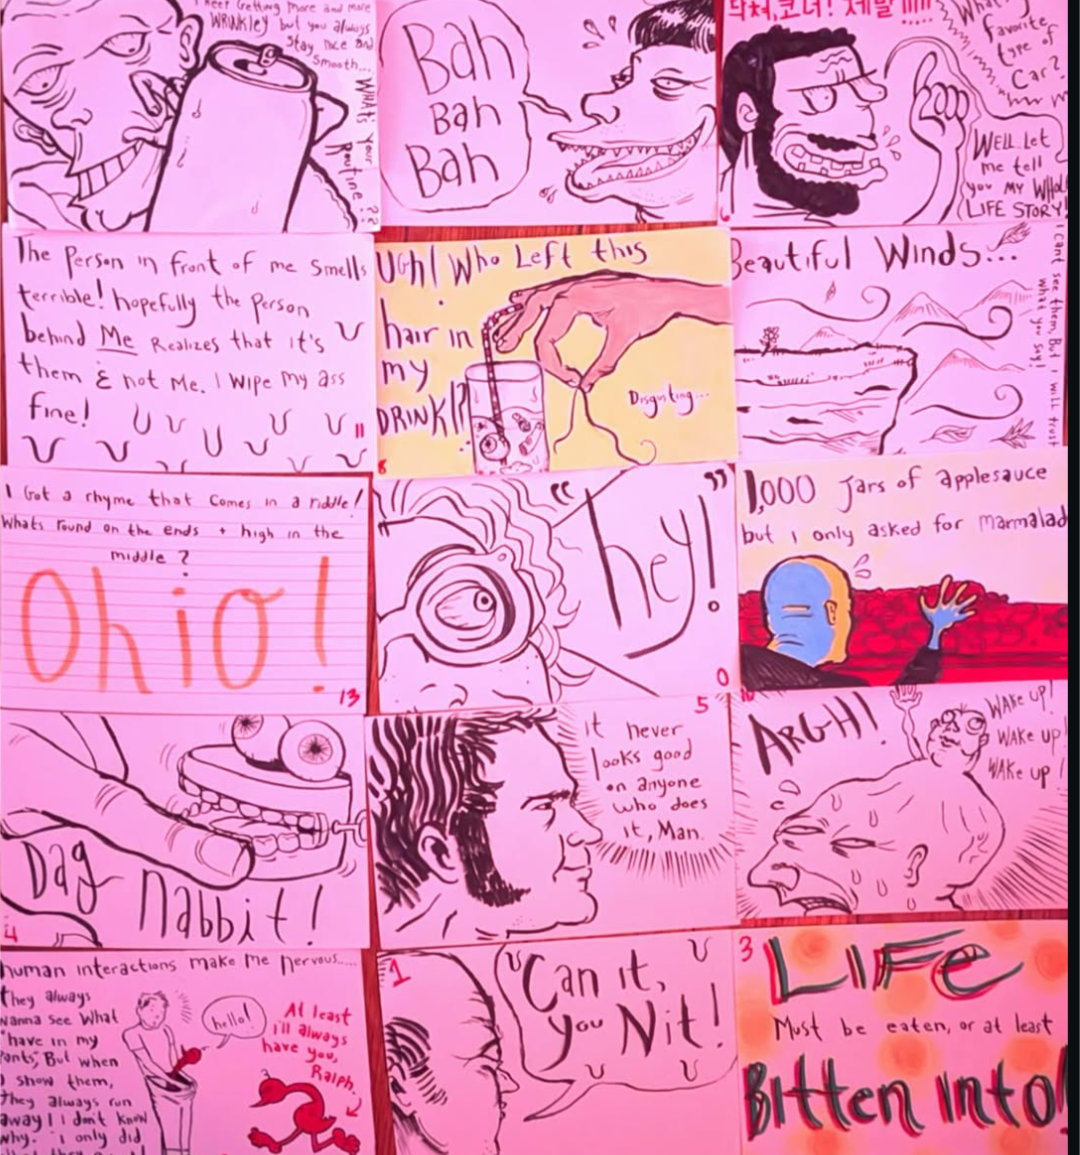 I keep getting more and more
WRINKLEY but you always
Stay nice and
smooth...
WHAT'S your
Routine??
Bah
Bah
Bah
닥쳐, 코너! 제발!!!!!
What's
favorite
type of
Car?
WELL let
me tell
you MY WHOLE
LIFE STORY!
6
The Person in front of me smells
terrible! hopefully the person
behind Me Realizes that it's
them & not Me. I WIPE MY ASS
fine!
11
UGH! Who Left this
hair in
my
DRINK!?
Disgusting...
8
Beautiful Winds...
I cant see them, But I will trust
what you say!
I Got a rhyme that comes in a riddle!
Whats round on the ends + high in the
middle?
Ohio!
13
"hey!"
0
1,000 Jars of applesauce
but I only asked for Marmalad
Dag
Nabbit!
4
5
it never
looks good
on anyone
who does
it, Man.
10
ARGH!
WAKE UP!
WAKE up!
WAKE up!
human interactions make me nervous.....
they always
wanna see What
"have in my
pants", But when
I show them,
they always run
away! I don't know
why. I only did
hello!
At least
i'll always
have you,
Ralph.
1
Can it,
you Nit!
3
LIFE
Must be eaten, or at least
Bitten into!